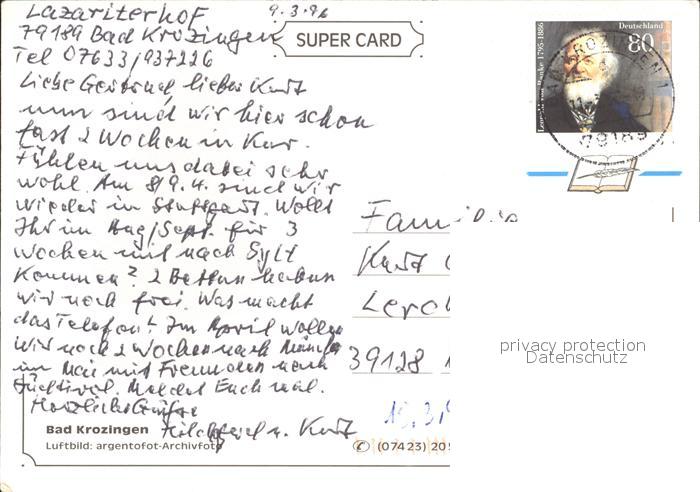 Lazariterhof 9.3.96
79189 Bad Krozingen
Tel 07633/937226
SUPER CARD
Deutschland
80
Leopold von Ranke 1795-1886
79189
Liebe Gertrud, lieber Kurt
nun sind wir hier schon
fast 2 Wochen in Kur.
Fühlen uns dabei sehr
wohl. Am 8/9.4. sind wir
wieder in Stuttgart. Wollt
Ihr im Aug/Sept. für 3
Wochen mit nach Sylt
kommen? 2 Betten haben
wir noch frei. Was macht
das Telefon? Im April wollen
wir noch 2 Wochen nach
im Mai mit Freunden nach
Südtirol. Meldet Euch mal.
Herzliche Grüße
u. Kurt
Fami
Kurt
Lero
39128
privacy protection
Datenschutz
Bad Krozingen
Luftbild: argentofot-Archivfoto
(07423) 20